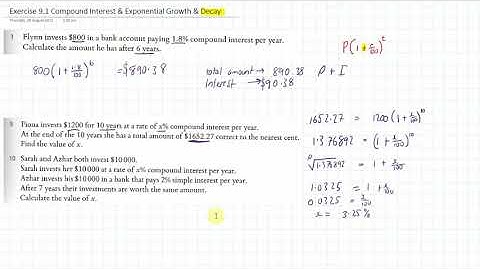 Exercise 9.1 Compound Interest & Exponential Growth & Decay
7 Flynn invests $800 in a bank account paying 1.8% compound interest per year.
Calculate the amount he has after 6 years.
P(1+r/100)^t
800(1+1.8/100)^6 = $890.38
total amount → 890.38 P + I
Interest → $90.38
9 Fiona invests $1200 for 10 years at a rate of x% compound interest per year.
At the end of the 10 years she has a total amount of $1652.27 correct to the nearest cent.
Find the value of x.
10 Sarah and Azhar both invest $10000.
Sarah invests her $10000 at a rate of x% compound interest per year.
Azhar invests his $10000 in a bank that pays 2% simple interest per year.
After 7 years their investments are worth the same amount.
Calculate the value of x.
1652.27 = 1200(1+x/100)^10
1.376892 = (1+x/100)^10
10√1.376892 = 1 + x/100
1.0325 = 1 + x/100
0.0325 = x/100
x = 3.25%
1